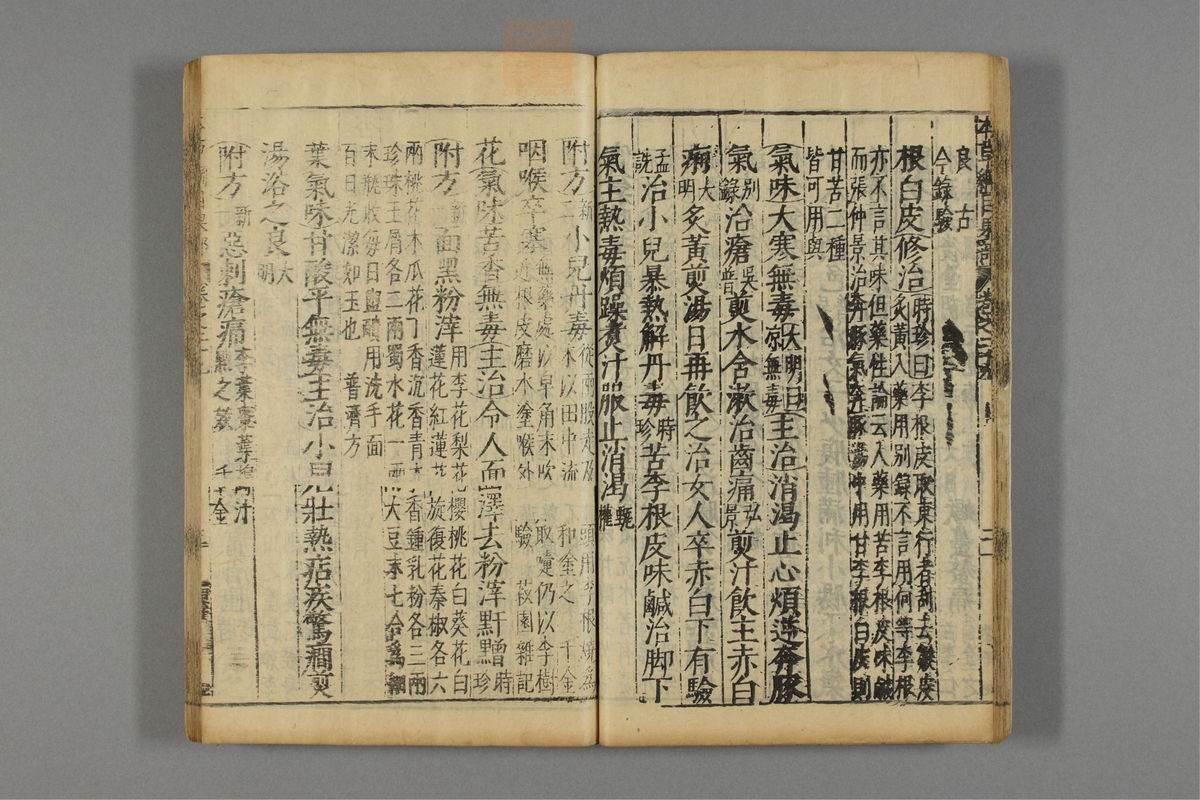 良古
今錄驗
根白皮修治時珍曰李根皮取東行者刮去皺皮
炙黃入藥用別錄不言用何等李根
亦不言其味但藥性論云入藥用苦李根皮味鹹
而張仲景治奔豚氣奔豚湯中用甘李根白皮則
甘苦二種
皆可用與
氣味大寒無毒大明曰
涼無毒主治消渴止心煩逆奔豚
氣別錄治瘡吳普煎水含漱治齒痛弘景煎汁飲主赤白
痢大明炙黃煎湯日再飲之治女人卒赤白下有驗
孟詵治小兒暴熱解丹毒時珍苦李根皮味鹹治脚下
氣主熱毒煩躁煮汁服止消渴甄權
附方新二小兒丹毒從兩股走及
頭用李根燒為
末以田中流
和塗之 千金
咽喉卒塞無藥處以皁角末吹
取嚏仍以李樹
近根皮磨水塗喉外
驗 菽園雜記
花氣味苦香無毒主治令人面澤去粉滓䵟䵳時珍
附方面黑粉滓用李花梨花
櫻桃花白葵花白
蓮花紅蓮花
旋復花秦椒各六
兩桃花木瓜花丁香沉香青木香鍾乳粉各三兩
珍珠玉屑各二兩蜀水花一兩大豆末七合為細
末瓶收每日盥靧用洗手面
百日光潔如玉也 普濟方
葉氣味甘酸平無毒主治小兒壯熱痁疾驚癇煎
湯浴之良大明
附方新惡刺瘡痛李葉棗葉
汁
點之 千金